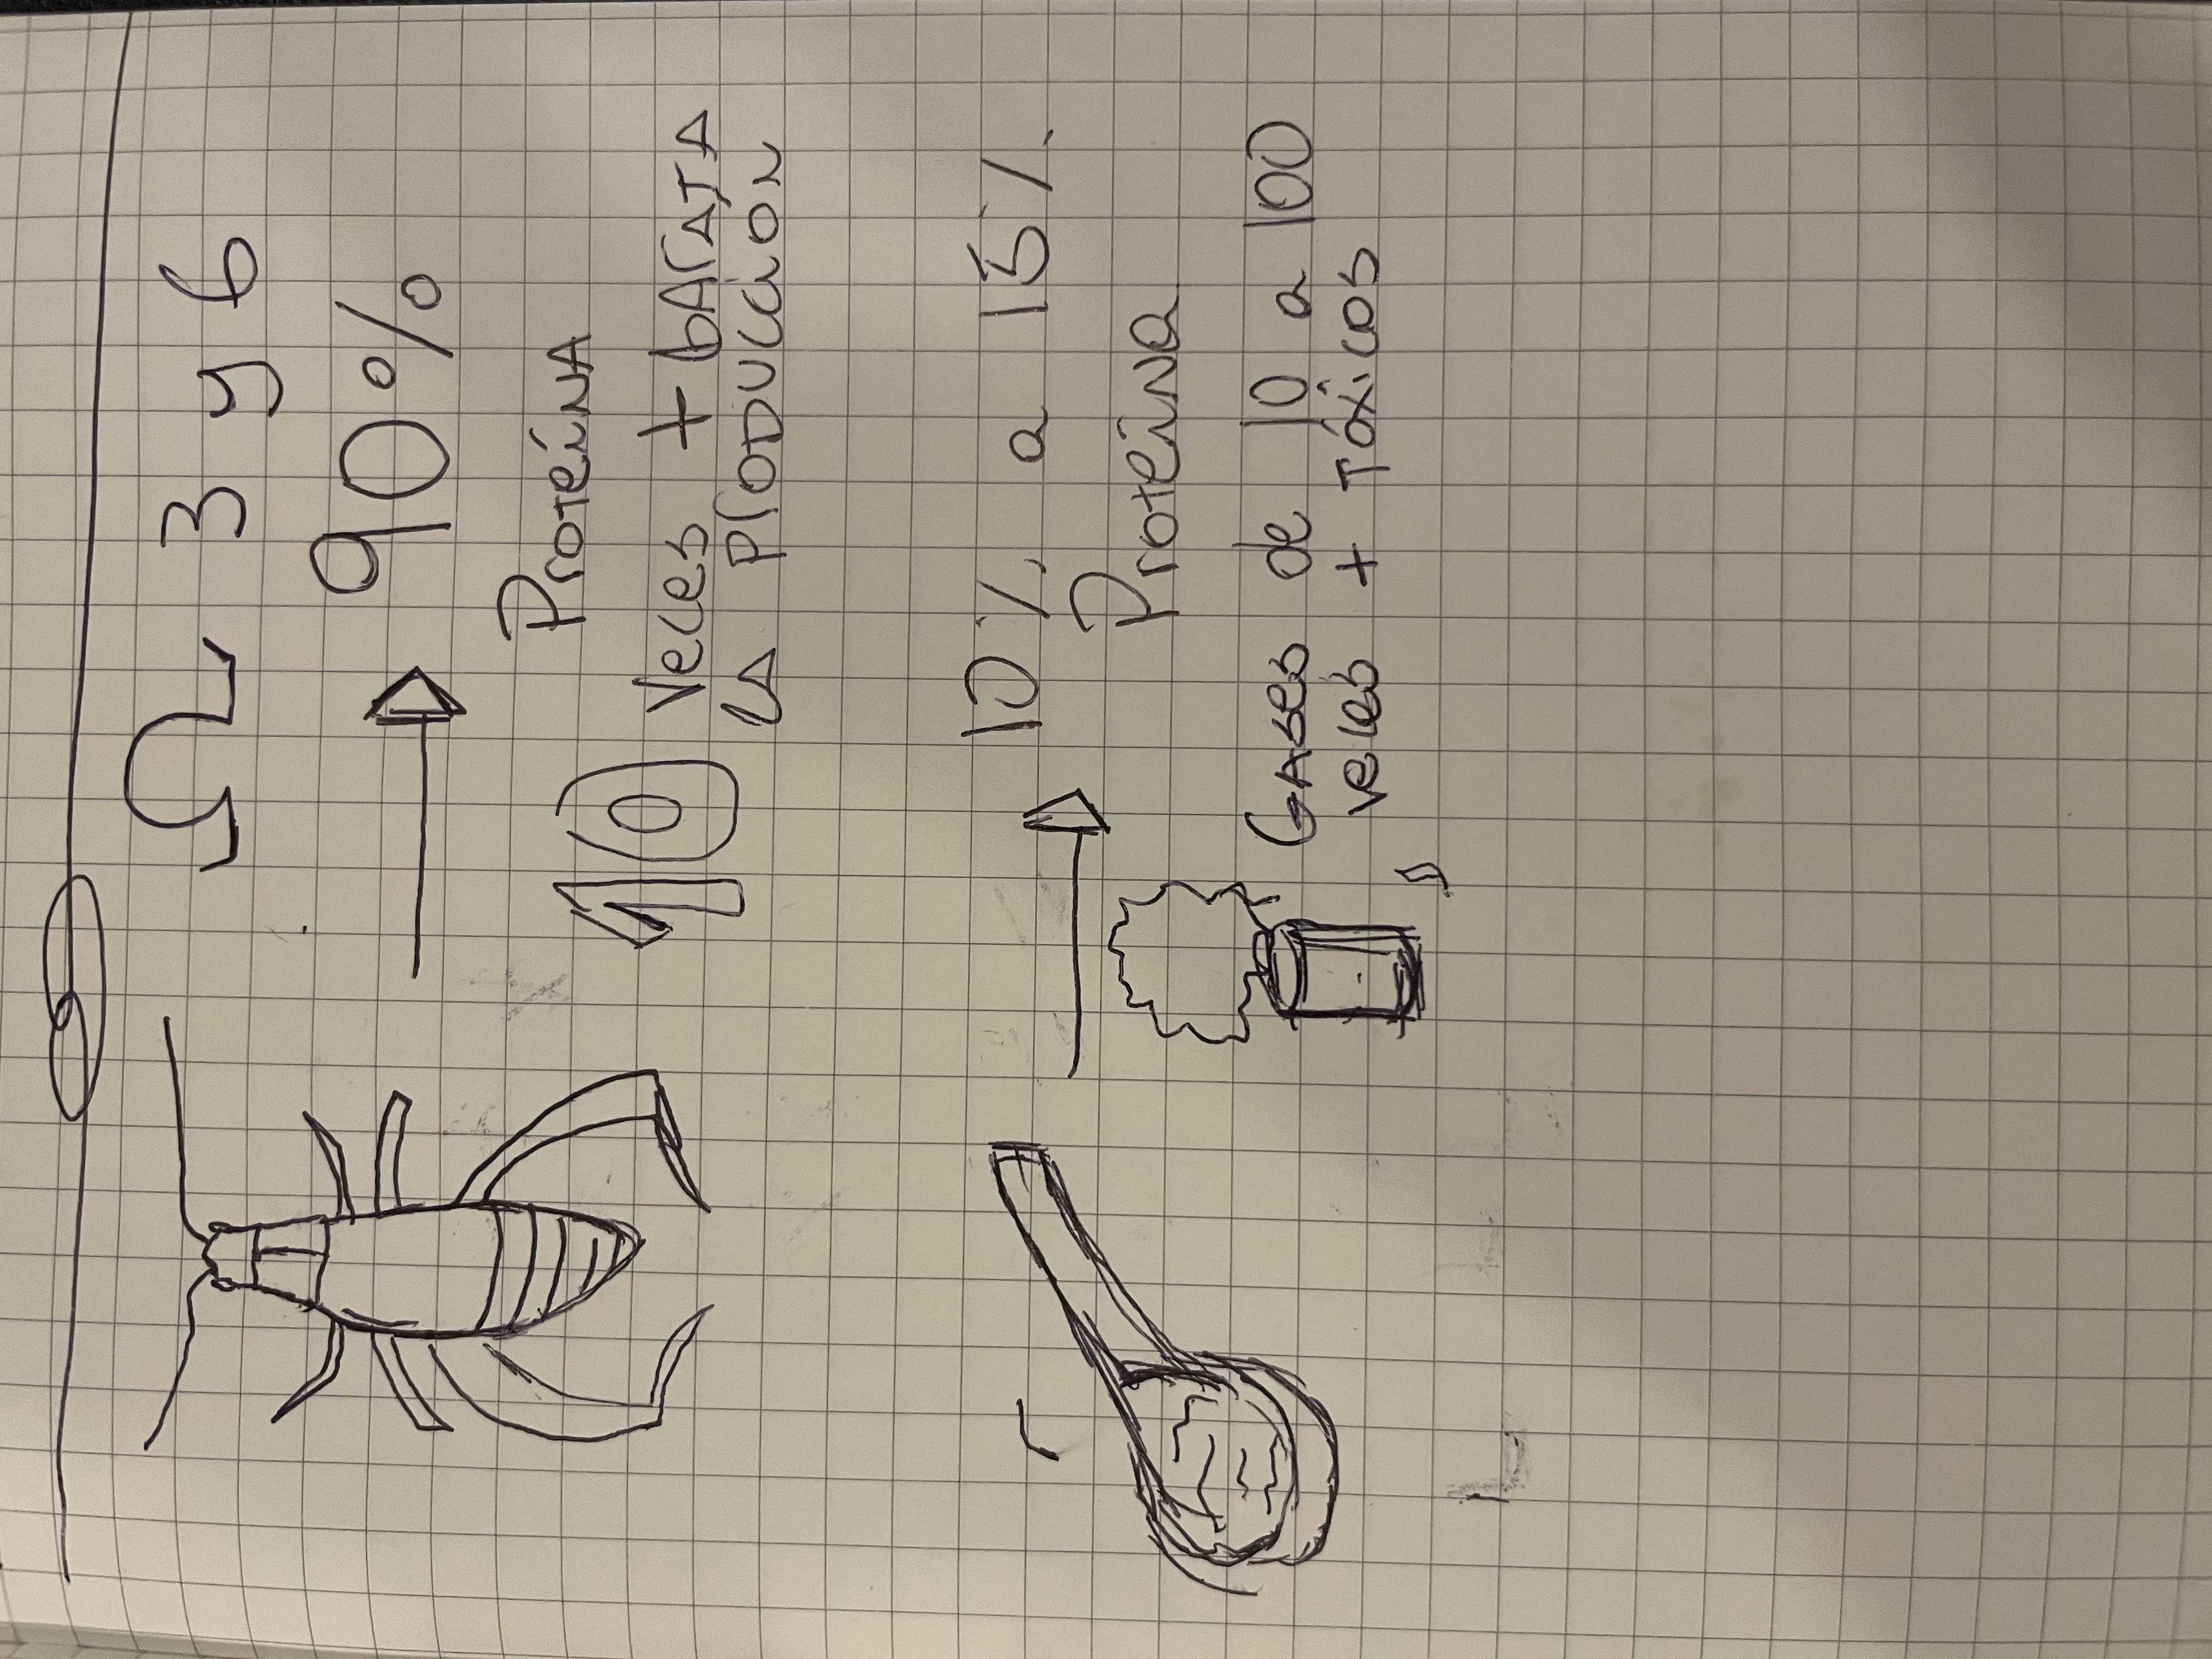 Ω 3 y 6
90%
Proteína
10 Veces + barata
la producción
10% a 15%
Proteína
Gases de 10 a 100
veces + tóxicos